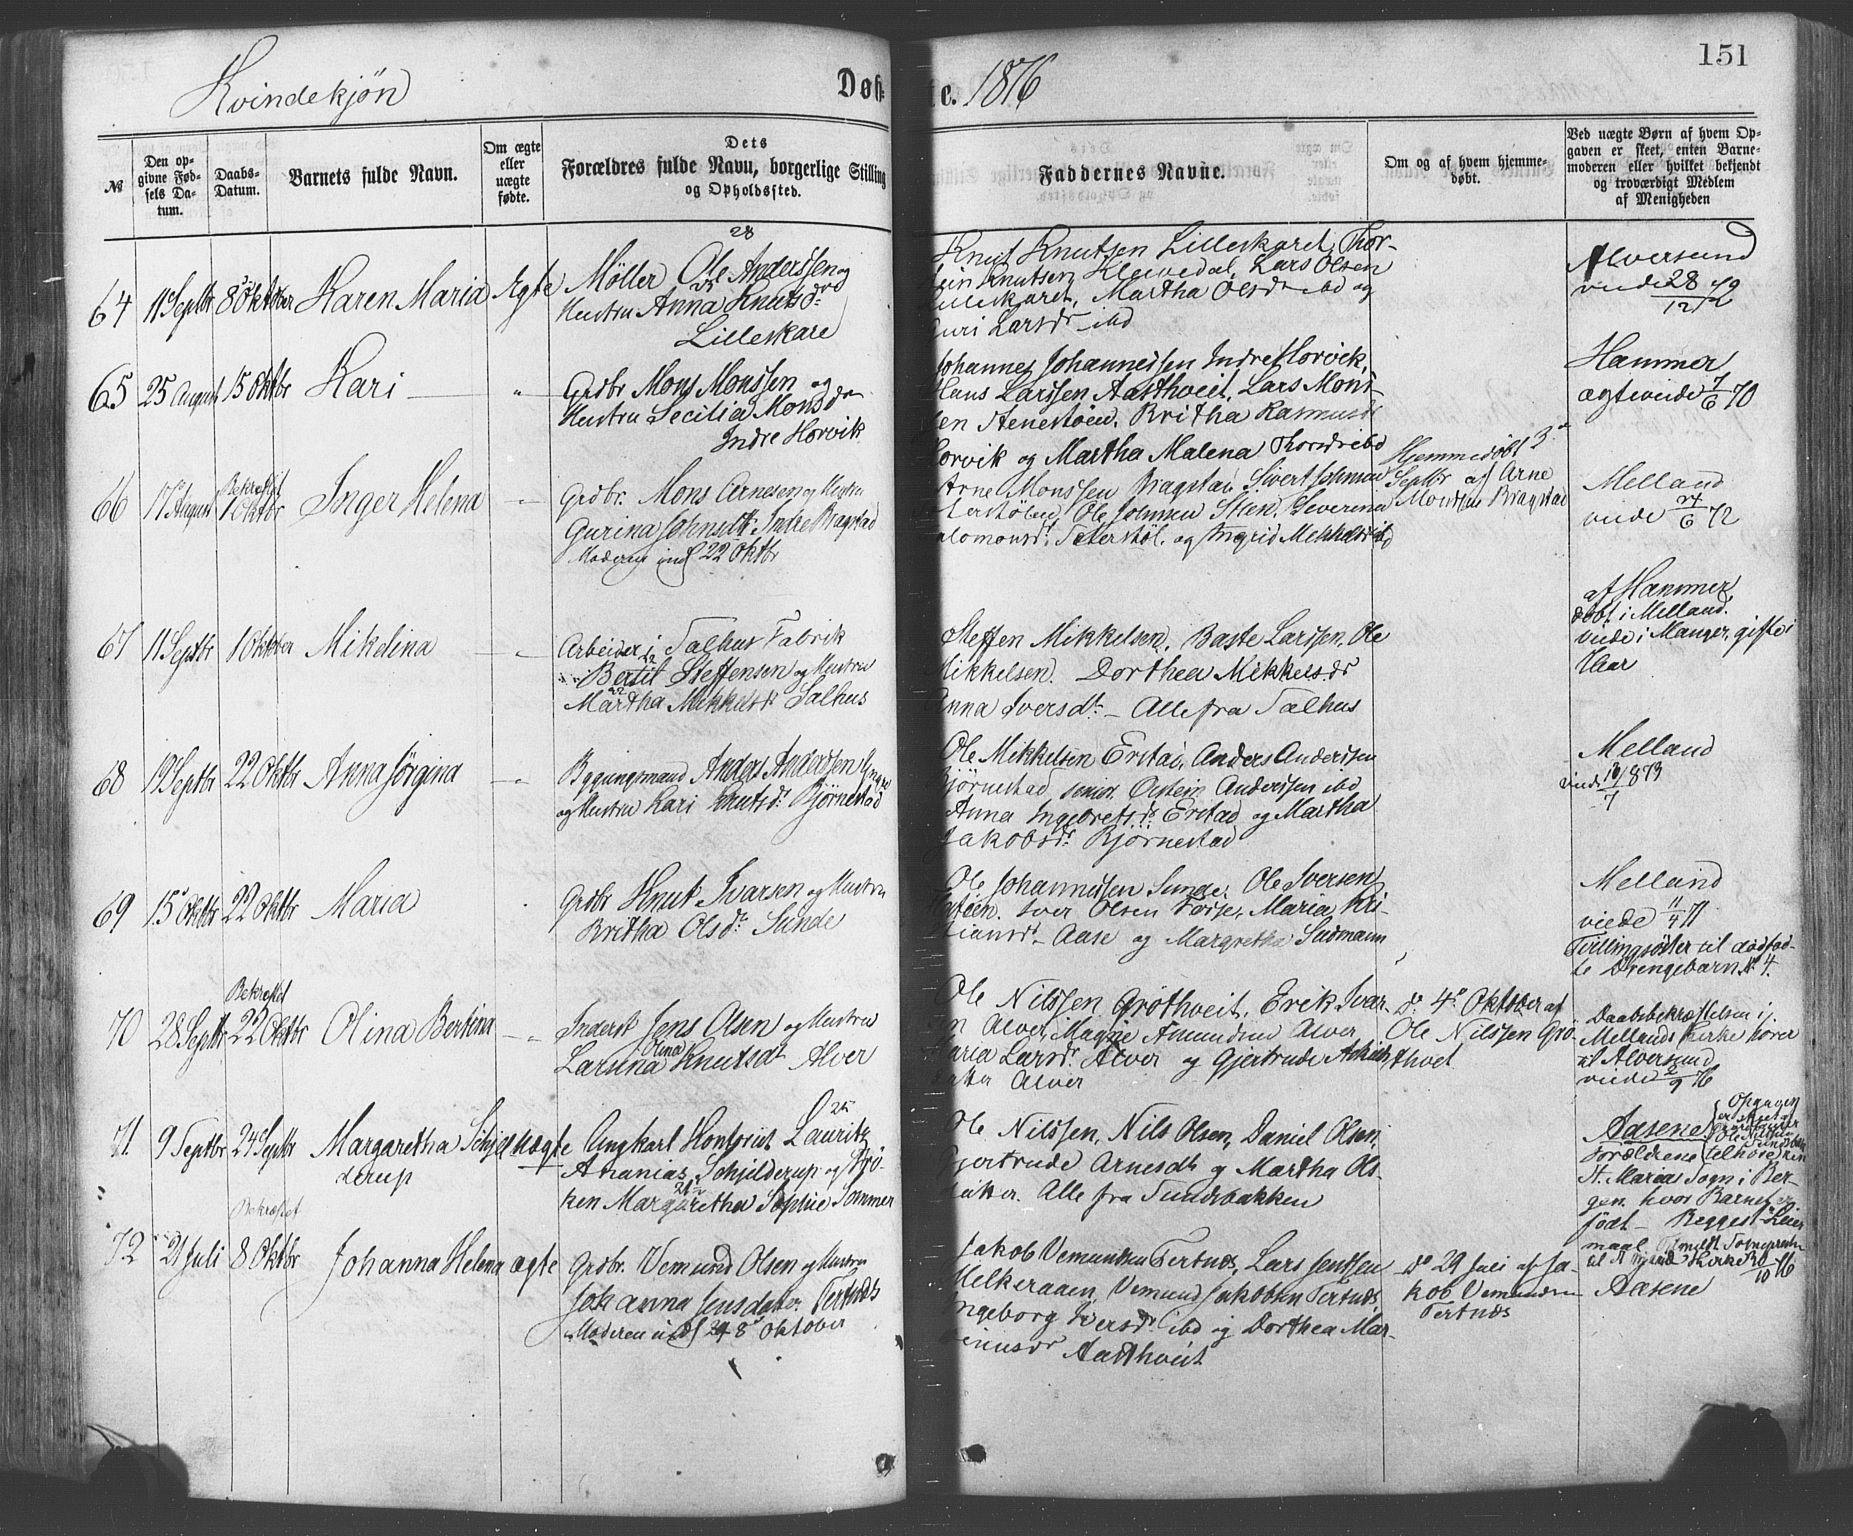 151
Kvindekjøn
Døb-
te. 1876
№
Den op-
givne Fød-
sels Da-
tum.
Daabs-
Datum.
Barnets fulde Navn.
Om ægte
eller
uægte
fødte.
Dets
Forældres fulde Navn, borgerlige Stilling
og Opholdssted.
Faddernes Navne.
Om og af hvem hjemme-
døbt.
Ved uægte Børn af hvem Op-
gaven er skeet, enten Barne-
moderen eller hvilket bekjendt
og troværdigt Medlem
af Menigheden
64
11 Septbr
8 Oktober
Karen Maria
Ægte
28
Møller Ole Anderssen og
Hustru Anna Knutsdr
Lilleskare
Knut Knutsen Lilleskaret, Thor-
Knutsen Kleivedal, Lars Olsen
Lilleskaret, Martha Olsdr ibd og
Guri Larsdr ibd
Alversund
viede 28/12 72
65
25 August
15 Oktbr
Kari
"
Grdbr Mons Monssen og
Hustru Cecilia Monsdr
Indre Horvik
Johannes Johannessen Indre Horvik,
Hans Larssen Aastveit, Lars Mons-
sen Stenestøen, Britha Rasmusdr
Horvik og Martha Malena Thorsdr ibd
Hammer
ægteviede 7/6 70
66
17 August
Bekræftet
1 Oktbr
Inger Helena
"
Grdbr. Mons Arnesen og Hustru
Gurina Johnsdtr. Indre Bragstad
Moderen indl 22 Oktbr
Arne Monssen Bragstad, Sivert Johnsen
Ole Johnsen Steen, Severina
Salomonsdr. Teterstøl, og Ingrid Mikkelsdr ibd
Hjemmedøbt 3de
Septbr af Arne
Monssen Bragstad
Melland
viede 24/6 72
67
11 Septbr
1 Oktober
Mikelina
"
Arbeider i Salhus Fabrik
Bertil Steffensen og Hustru
Martha Mikkelsdr Salhus
Steffen Mikkelsen, Baste Larssen, Ole
Mikkelsen. Dorthea Mikkelsdr
Anna Iversdr. - Alle fra Salhus
af Hammer
døbt i Melland.
viede i Manger, gifte i
Aar
68
19 Septbr
22 Oktbr
Anna Jørgina
"
Bygningsmand Anders Anderssen Yngre
og Hustru Kari Knutsdr Bjørnestad
Ole Mikkelsen Erstad, Anders Anderssen
Bjørnestad senior. Østein Anderssen ibd
Anna Ingebretsdr. Erstad og Martha
Jakobsdr. Bjørnestad
Melland
viede 13/7 1873
69
15 Oktbr
22 Oktbr
Maria
Grdbr Knut Ivarsen og Hustru
Britha Olsdr. Sunde
Ole Johannessen Sunde. Ole Iversen
Iver Olsen Fosse, Maria Kri-
stiansdr. Aase og Margretha Sudmann
Melland
viede 11/4 71
Tvillingsøster til dødfød-
te Drengebarn № 4.
70
28 Septbr
Bekræftet
22 Oktbr
Olina Bertina
"
Inderst Jens Olsen og Hustru
Larsina Olina Knutsdt Alver
Ole Nilssen Grøthveit, Erik Ivar-
sen Alver, Magne Amundsen Alver
Maria Larsdr. Alver og Gjertrude
Alver
do 4de Oktober af
Ole Nilssen Grø-
thvet
Daabsbekræftelsen i
Mellands Kirke hører
til Alversund
viede 2/9 76
71
9 Septbr
24 Septbr
Margaretha Schjel-
derup
uægte
25
Ungkarl Kontorist Lauritz
Ananias Schjelderup og Frø-
ken Margaretha Sophie Sommer
Ole Nilssen, Nils Olsen, Daniel Olsen,
Gjertrude Arnesdt og Martha Ols-
datter. Alle fra Tundsbakken
Aasene
Opgaven
Ole Nilssen
Forældrene tilhøre
St. Marias Sogn i Ber-
gen hvor Barnet er
født - Begges 1ste Leier-
maal.
72
21 Juli
Bekræftet
8 Oktbr
Johanna Helena
ægte
Grdbr. Vemund Olsen og Hustru
Johanna Jensdatter Tertnæs
Moderen indl 8 Oktober
Jakob Vemundsen Tertnæs, Lars Jenssen
Melkeraaen, Vemund Jakobsen Tertnæs,
Ingeborg Iversdr ibd og Dorthea Mar-
tinusdr Aasthveit
do 29 Juli af Ja-
kob Vemundsen
Tertnæs
Aasene